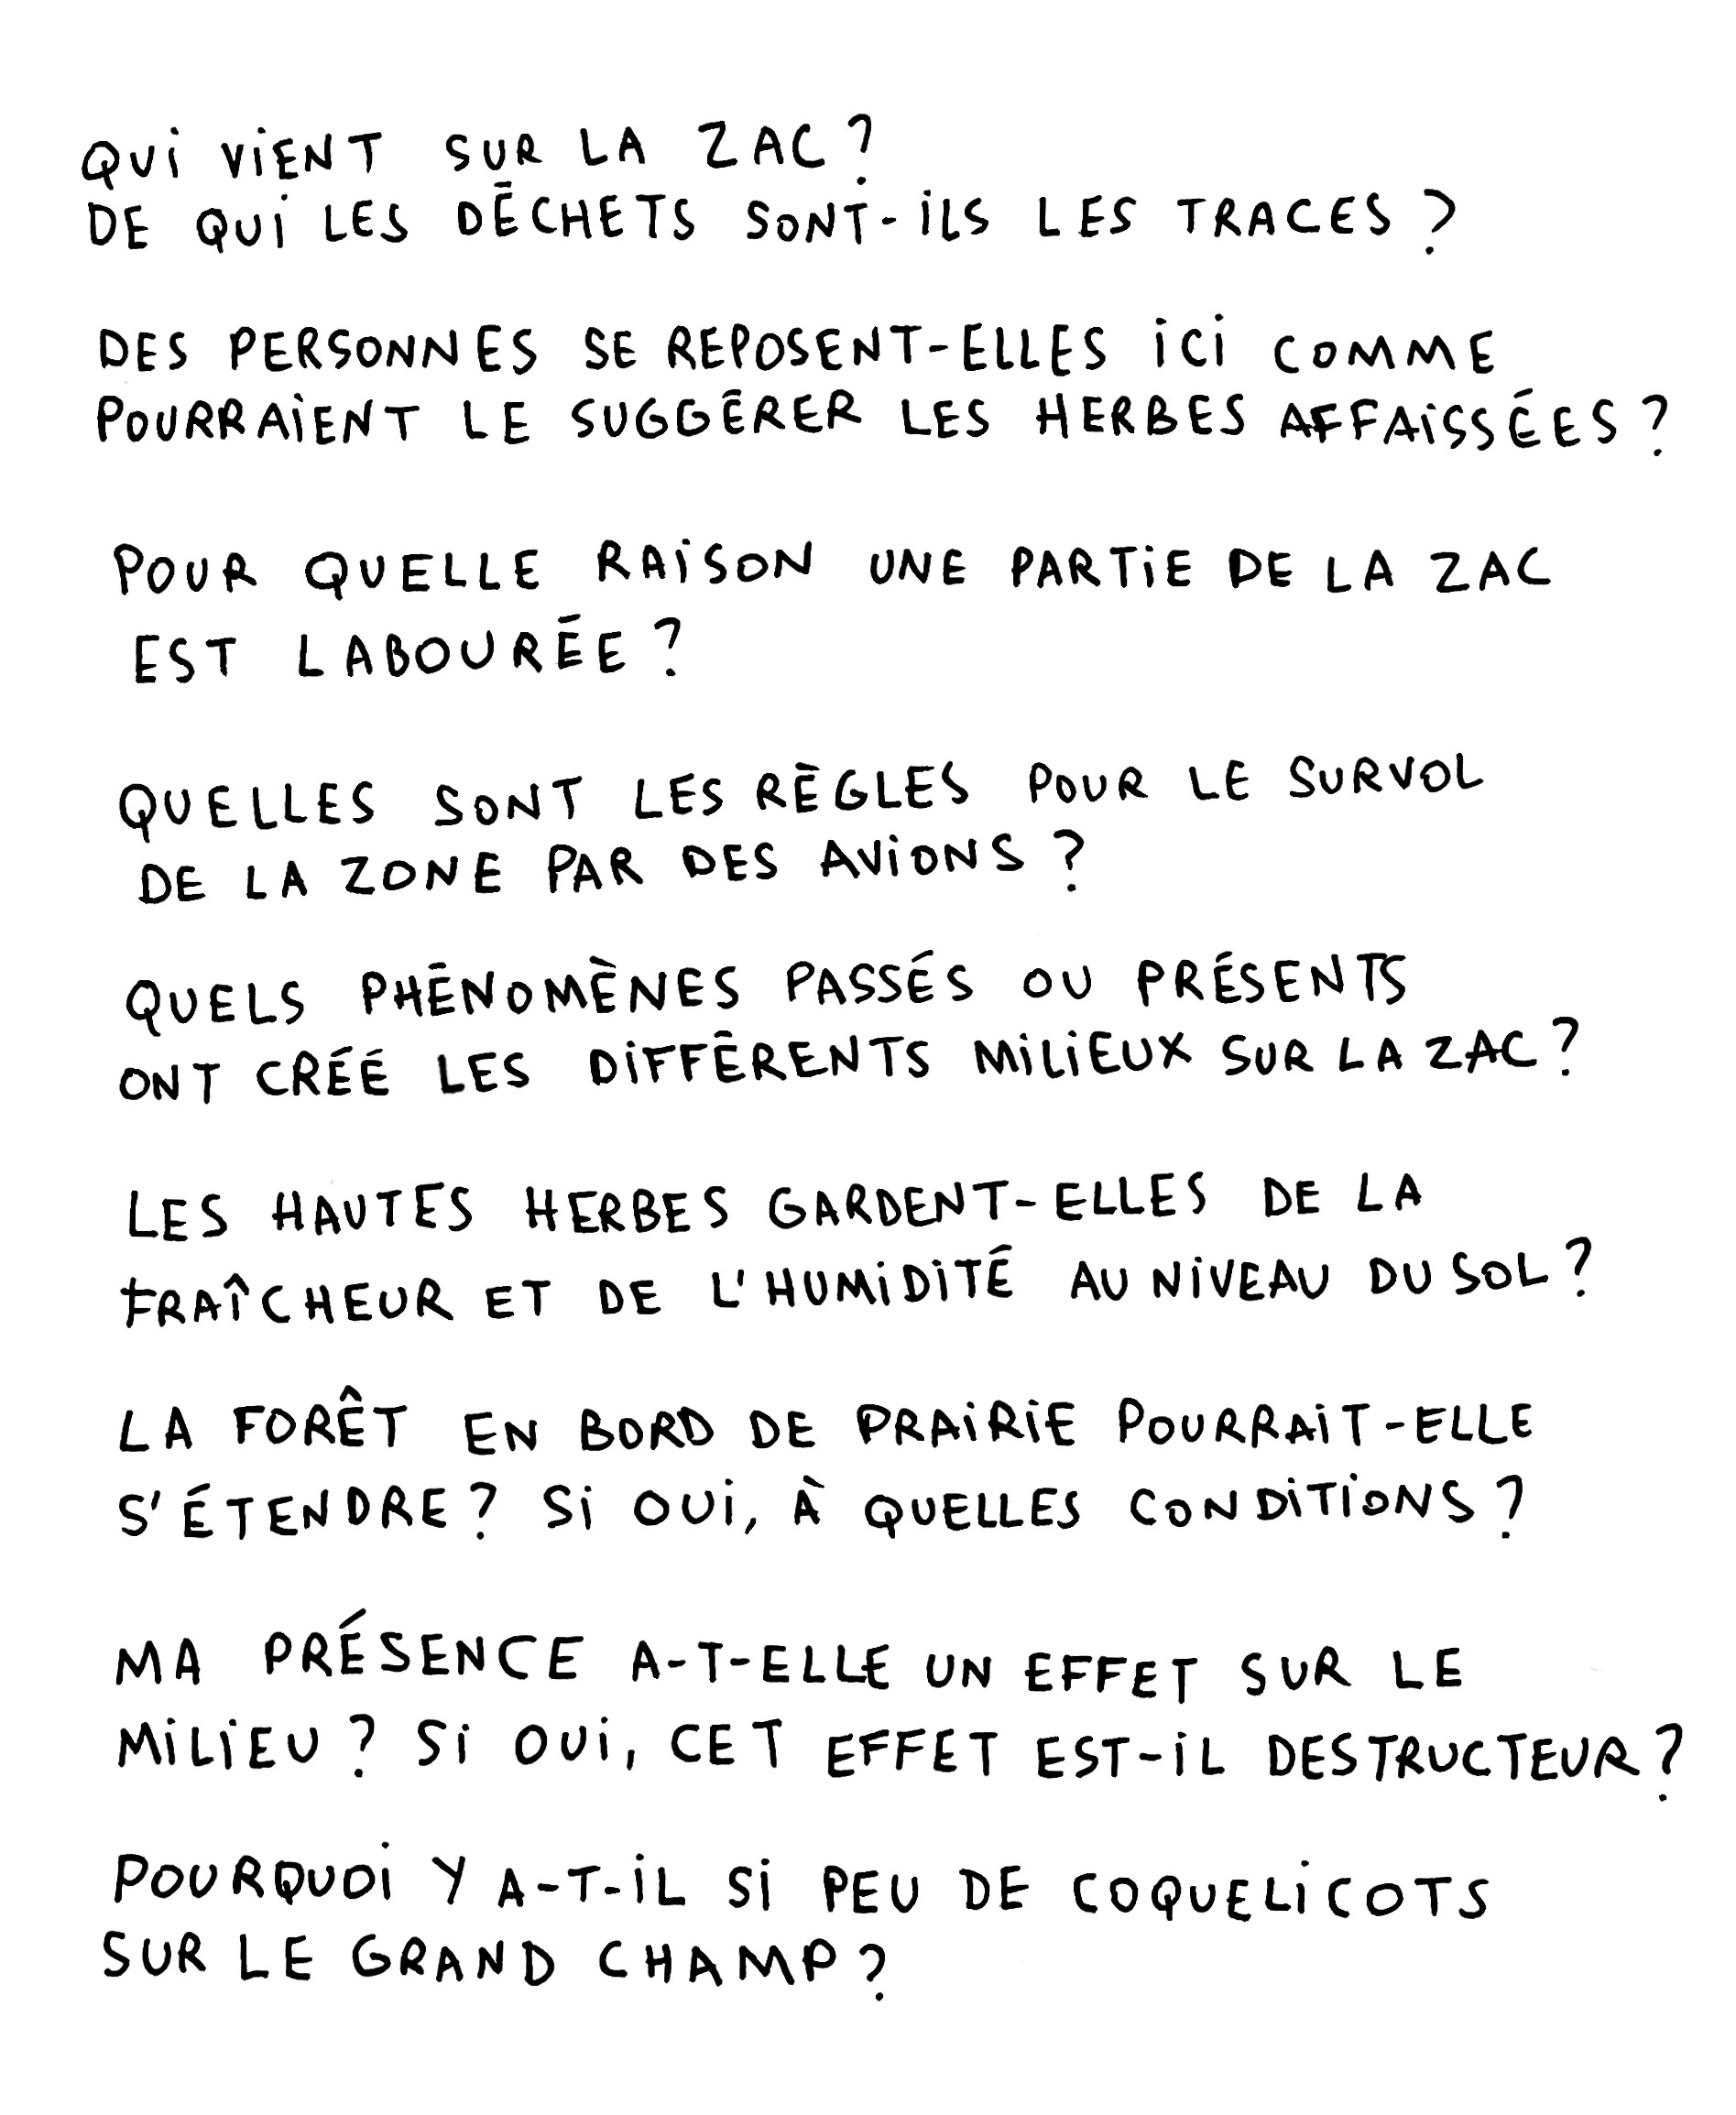 QUI VIENT SUR LA ZAC ?
DE QUI LES DÉCHETS SONT-ILS LES TRACES ?
DES PERSONNES SE REPOSENT-ELLES ICI COMME
POURRAIENT LE SUGGÉRER LES HERBES AFFAISSÉES ?
POUR QUELLE RAISON UNE PARTIE DE LA ZAC
EST LABOURÉE ?
QUELLES SONT LES RÈGLES POUR LE SURVOL
DE LA ZONE PAR DES AVIONS ?
QUELS PHÉNOMÈNES PASSÉS OU PRÉSENTS
ONT CRÉÉ LES DIFFÉRENTS MILIEUX SUR LA ZAC ?
LES HAUTES HERBES GARDENT-ELLES DE LA
FRAÎCHEUR ET DE L'HUMIDITÉ AU NIVEAU DU SOL ?
LA FORÊT EN BORD DE PRAIRIE POURRAIT-ELLE
S'ÉTENDRE ? SI OUI, À QUELLES CONDITIONS ?
MA PRÉSENCE A-T-ELLE UN EFFET SUR LE
MILIEU ? SI OUI, CET EFFET EST-IL DESTRUCTEUR ?
POURQUOI Y A-T-IL SI PEU DE COQUELICOTS
SUR LE GRAND CHAMP ?